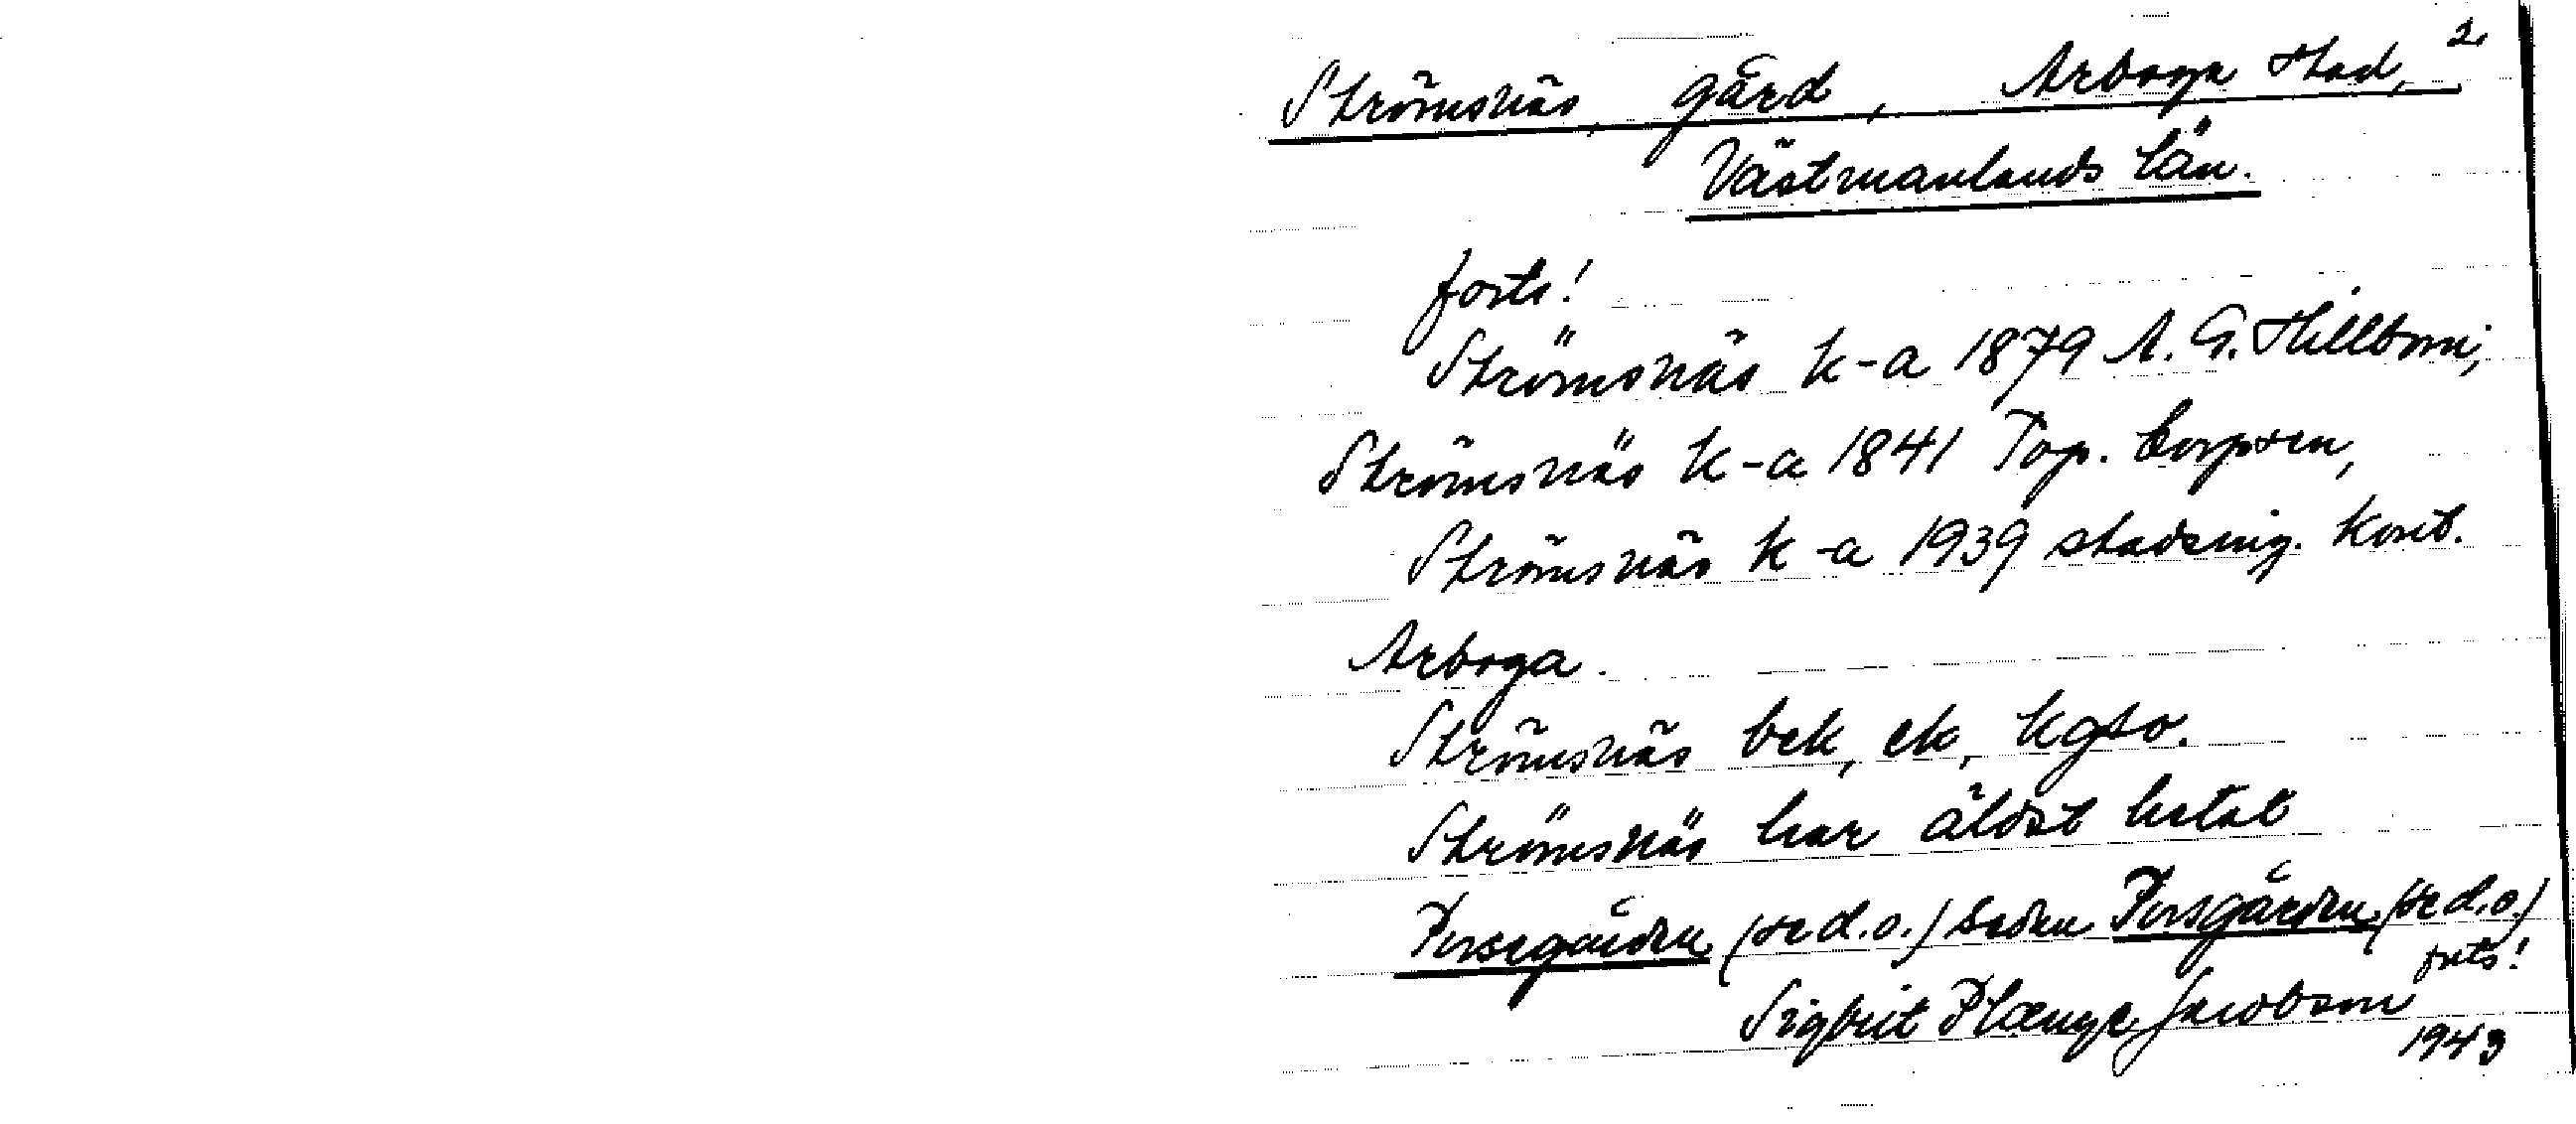 Strömsnäs, gård, Arboga stad, 2.
Västmanlands län.
forts!
Strömsnäs k-a 1879 A. G. Hillbom;
Strömsnäs k-a 1841 Top. Corpsen,
Strömsnäs k-a 1939 stadsing. kont.
Arboga.
Strömsnäs bek, ek, kgso.
Strömsnäs har äldst hetat
Persegården (se d.o.) sedan Persgården (se d.o.)
forts!
Sigbrit Plænge Jacobson
1943